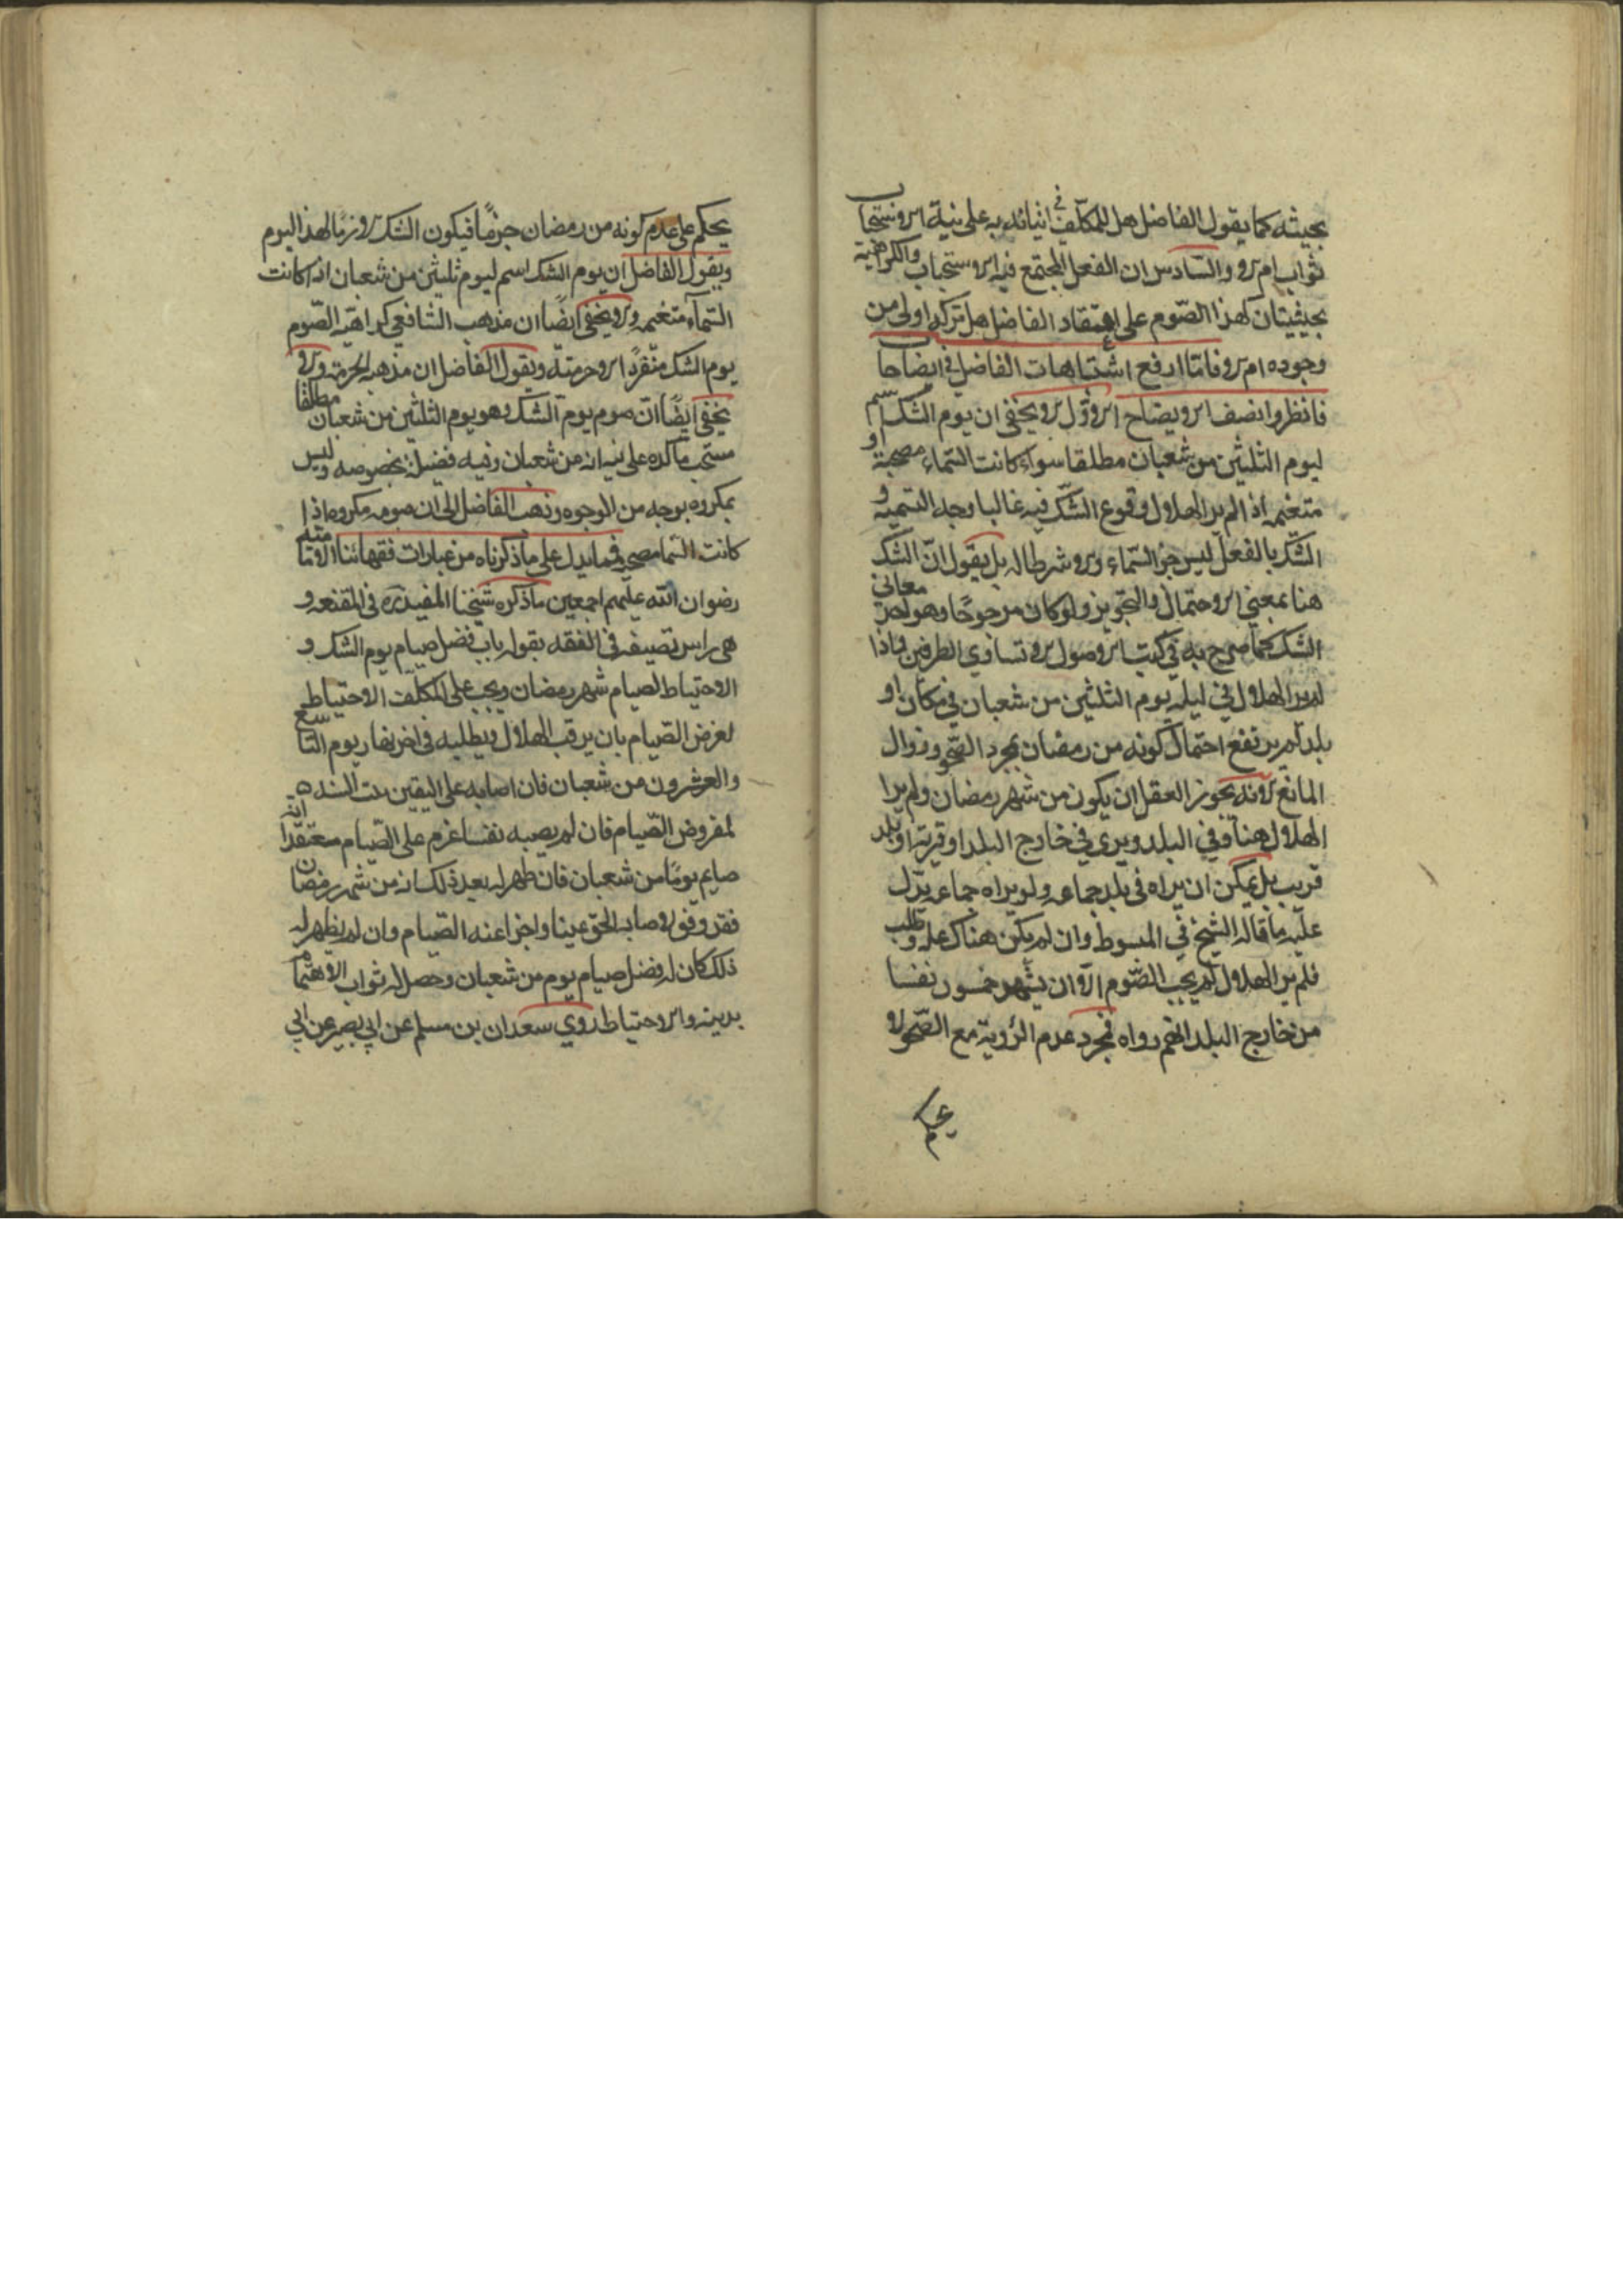 بحيثه كما يقول الفاضل هل للمكلف في اتيانه به على نية الاستحباب
ثواب ام لا والسادس ان الفعل المجتمع فيه الاستحباب والكراهية
بحيثيتان كهذا الصوم على اعتقاد الفاضل هل تركه اولى من
وجوده ام لا فاما ارفع اشتباهات الفاضل في ايضاحا
فانظر وانصف الايضاح الاول لا يخفى ان يوم الشك اسم
ليوم الثلثين من شعبان مطلقا سواء كانت السماء مصحية او
متغيمه اذ الم ير الهلال وقوع الشك فيه غالبا وجه التسمية و
الشك بالفعل ليس جز السماء ولا شرطا له بل يقول ان الشك
هنا بمعنى الاحتمال والتجويز ولو كان مرجوحا وهو احد معانى
الشك كما صرح به في كتب الاصول لا تساوي الطرفين فاذا
لم ير الهلال في ليله يوم الثلثين من شعبان في مكان او
بلد لم يرتفع احتمال كونه من رمضان بمجرد الصحو وزوال
المانع لانه يجوز العقل ان يكون من شهر رمضان ولم يرا
الهلال هنا وفي البلد ويرى في خارج البلد او قرية او بلد
قريب بل يمكن ان يراه في بلد جماعه ولو يراه جماعه يدل
عليه ما قاله الشيخ في المبسوط وان لم يكن هناك عله وطلب
فلم ير الهلال لم يجب الصوم الا ان يشهد خمسون نفسا
من خارج البلد انهم رواه فمجرد عدم الرؤية مع الصحو لا
يحكم
يحكم على عدم كونه من رمضان جزما فيكون الشك لازما لهذا اليوم
ويقول الفاضل ان يوم الشك اسم ليوم ثلثين من شعبان اذا كانت
السماء متغيمه ولا يخفى ايضا ان مذهب الشافعي كراهية الصوم
يوم الشك منفردا لا حرمته ويقول الفاضل ان مذهبه الحرمة ولا
يخفى ايضا ان صوم يوم الشك وهو يوم الثلثين من شعبان مطلقا
مستحب مأكده على نية انه من شعبان وفيه فضيلة بخصوصه وليس
بمكروه بوجه من الوجوه وذهب الفاضل الى ان صومه مكروه اذا
كانت السما مصحيه فمما يدل على ما ذكرناه من عبارات فقهائنا الامامية
رضوان الله عليهم اجمعين ما ذكره شيخنا المفيد ره في المقنعه و
هى راس تصنيفه في الفقه بقوله باب فضل صيام يوم الشك و
الاحتياط لصيام شهر رمضان ويجب على المكلف الاحتياط
لفرض الصيام بان يرقب الهلال ويطلبه في اخر نهار يوم التاسع
والعشرون من شعبان فان اصابه على اليقين بيت النيه
لمفروض الصيام فان لم يصبه نفسا عزم على الصيام معتقدا انه
صايم يوما من شعبان فان ظهر له بعد ذلك انه من شهر رمضان
فقد وفق لاصابه الحق عينا واجزا عنه الصيام وان لم يظهر له
ذلك كان له فضل صيام يوم من شعبان وحصل له ثواب الاهتمام
بدينه والاحتياط روي سعدان بن مسلم عن ابي بصير عن ابي